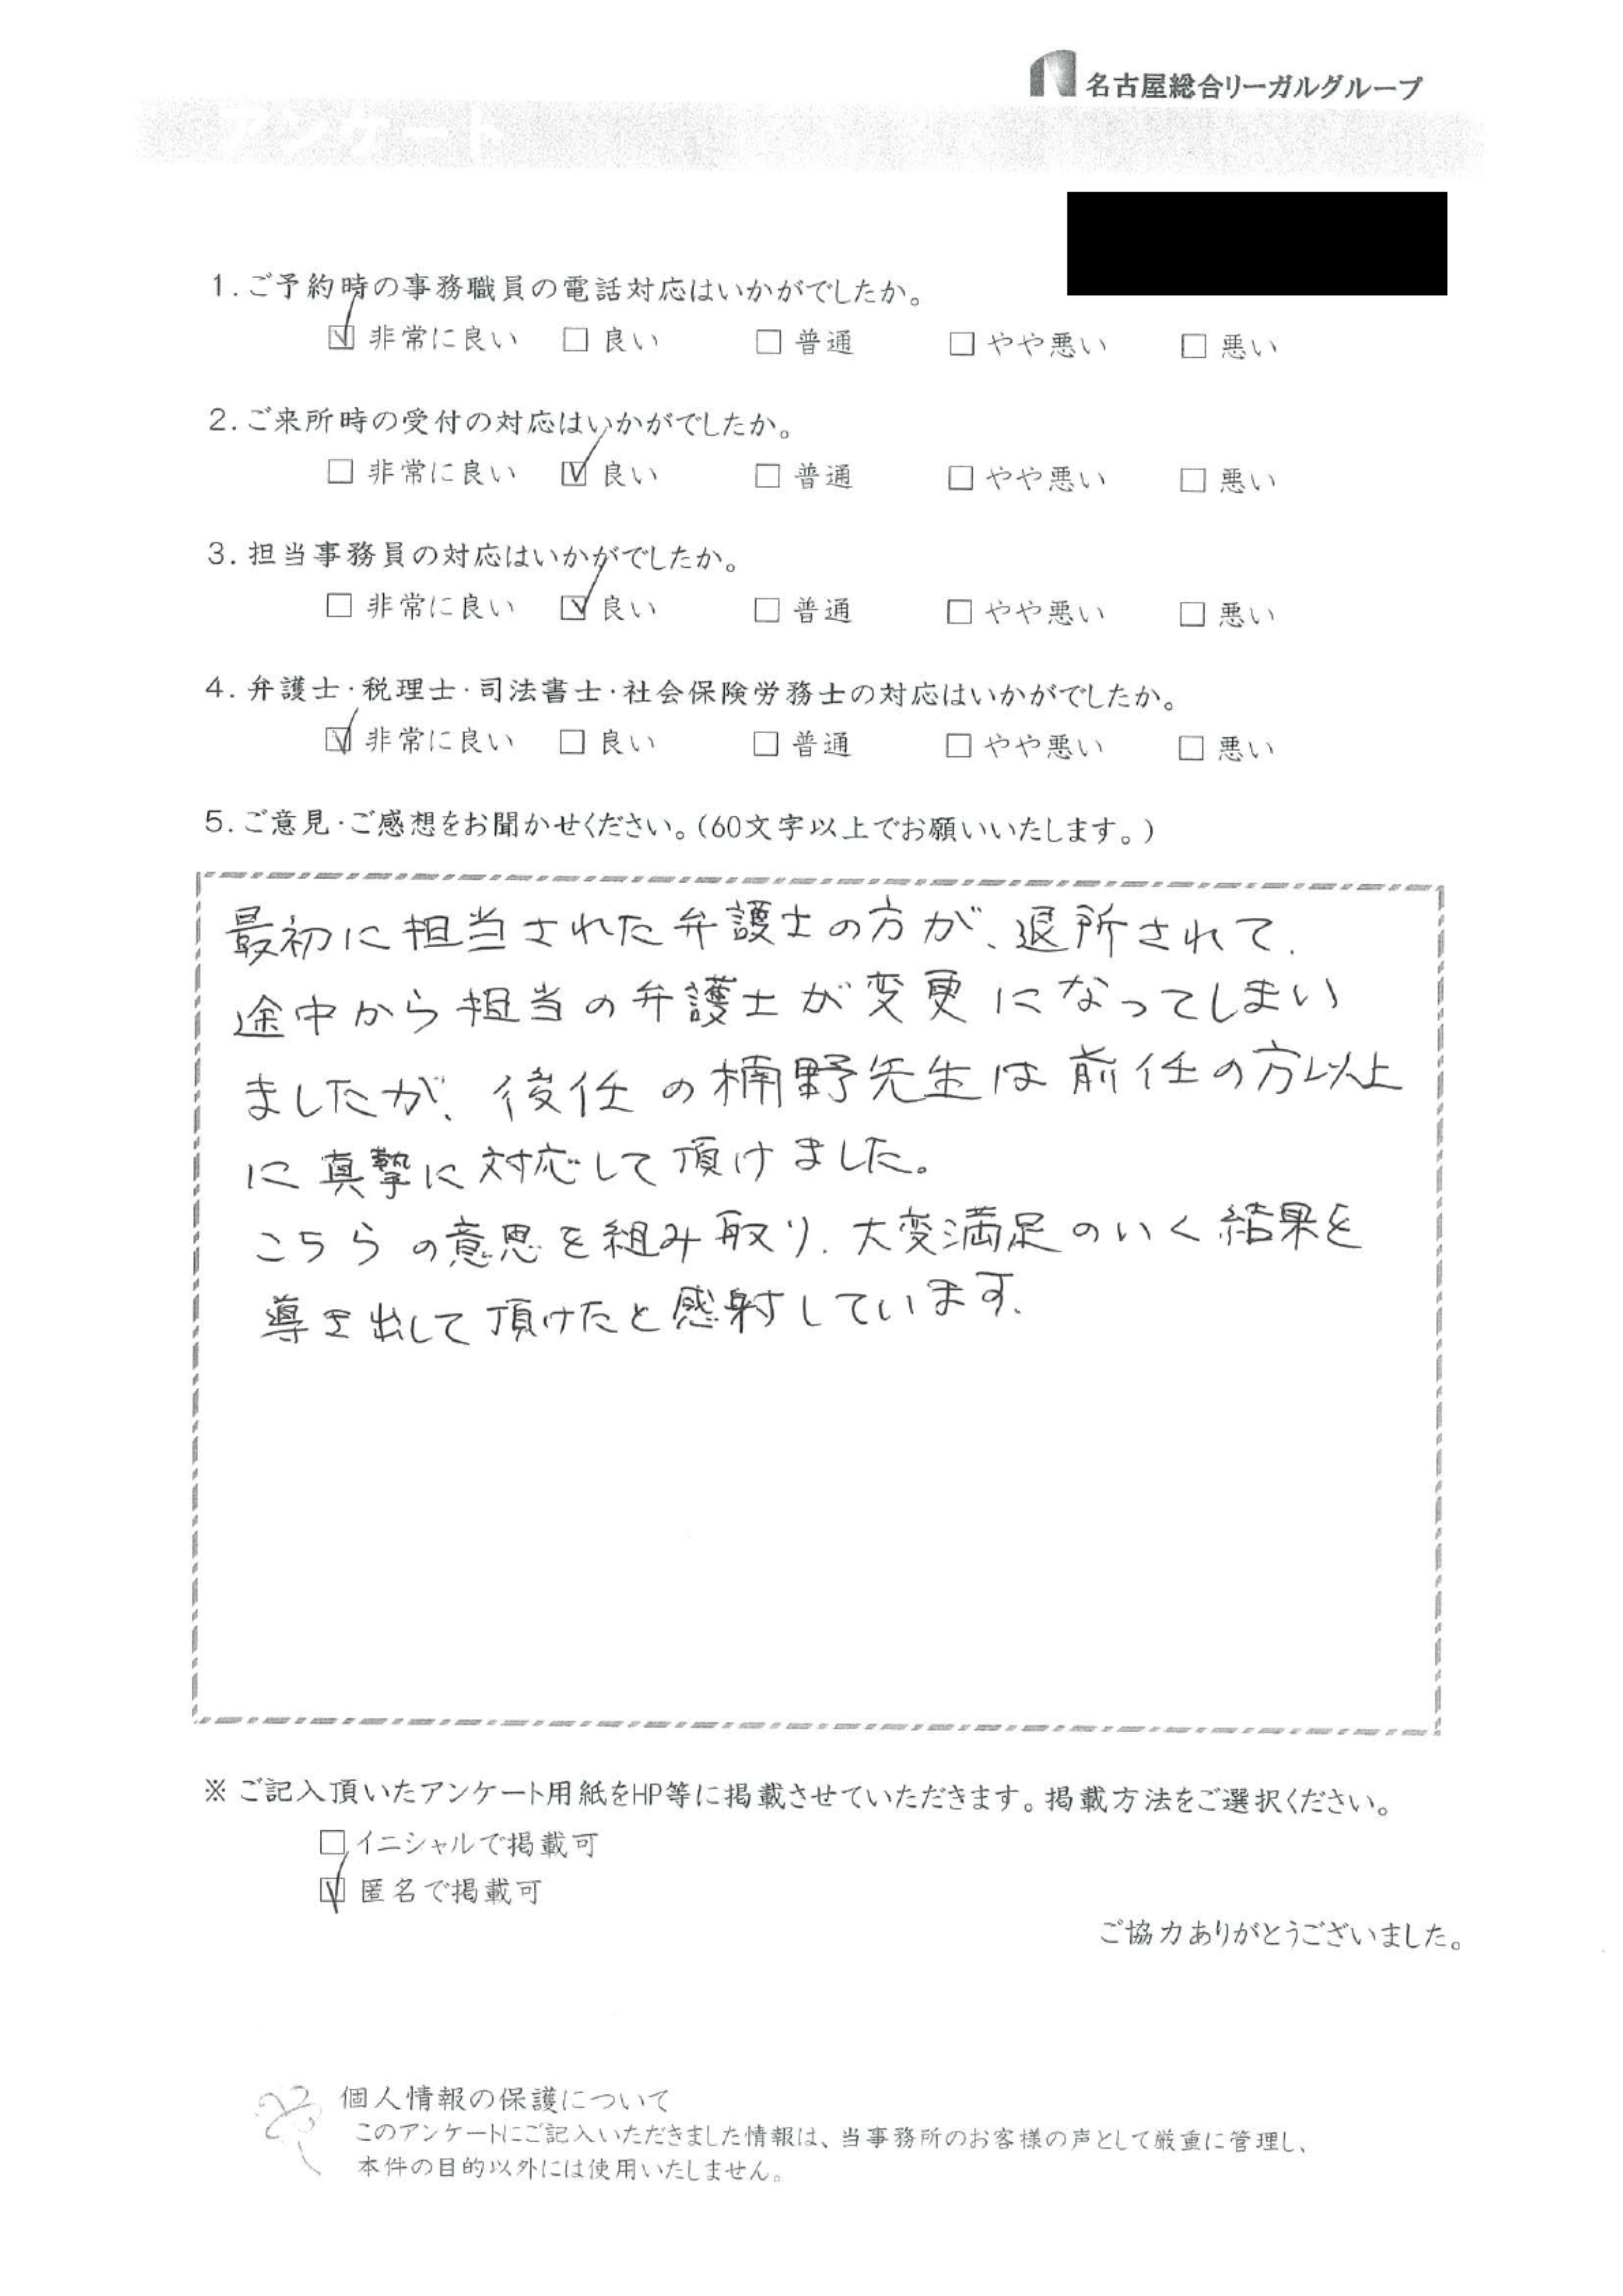 名古屋総合リーガルグループ
アンケート
1.ご予約時の事務職員の電話対応はいかがでしたか。
☑ 非常に良い □ 良い □ 普通 □ やや悪い □ 悪い
2.ご来所時の受付の対応はいかがでしたか。
□ 非常に良い ☑ 良い □ 普通 □ やや悪い □ 悪い
3.担当事務員の対応はいかがでしたか。
□ 非常に良い ☑ 良い □ 普通 □ やや悪い □ 悪い
4.弁護士・税理士・司法書士・社会保険労務士の対応はいかがでしたか。
☑ 非常に良い □ 良い □ 普通 □ やや悪い □ 悪い
5.ご意見・ご感想をお聞かせください。(60文字以上でお願いいたします。)
最初に担当された弁護士の方が、退所されて、
途中から担当の弁護士が変更になってしまい
ましたが、後任の楠野先生は前任の方以上
に真摯に対応して頂けました。
こちらの意思を組み取り、大変満足のいく結果を
導き出して頂けたと感射しています。
※ご記入頂いたアンケート用紙をHP等に掲載させていただきます。掲載方法をご選択ください。
□ イニシャルで掲載可
☑ 匿名で掲載可
ご協力ありがとうございました。
個人情報の保護について
このアンケートにご記入いただきました情報は、当事務所のお客様の声として厳重に管理し、
本件の目的以外には使用いたしません。